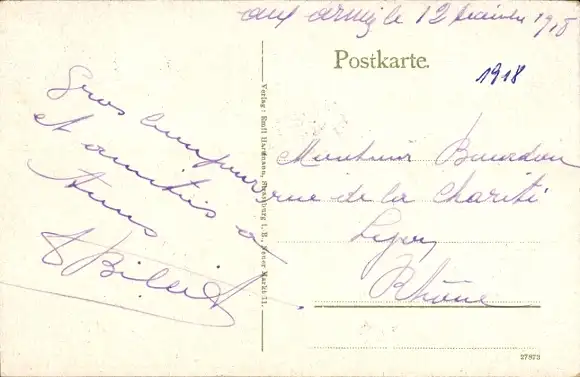 aux armées le 12 décembre 1918
Postkarte.
1918
Gros
et amitiés à
tous
Bilait
Verlag: Emil Hartmann, Strassburg i. E., Neuer Markt 11.
Monsieur Bourdon
rue de la Charité
Lyon
Rhône
27873